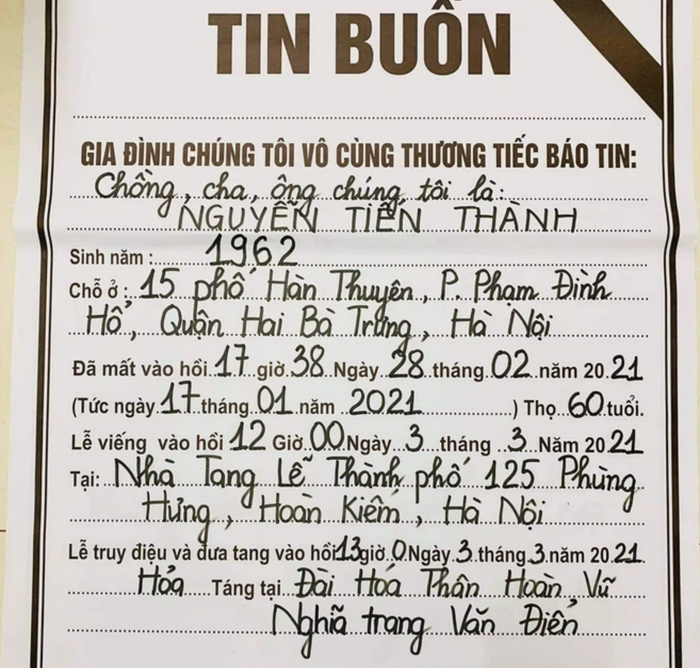 TIN BUỒN
GIA ĐÌNH CHÚNG TÔI VÔ CÙNG THƯƠNG TIẾC BÁO TIN:
Chồng, cha, ông chúng tôi là:
NGUYỄN TIẾN THÀNH
Sinh năm : 1962
Chỗ ở : 15 phố Hàn Thuyên, P. Phạm Đình
Hổ, Quận Hai Bà Trưng, Hà Nội
Đã mất vào hồi 17 giờ 38 Ngày 28 tháng 02 năm 2021
(Tức ngày 17 tháng 01 năm 2021 ) Thọ 60 tuổi.
Lễ viếng vào hồi 12 Giờ 00 Ngày 3 tháng 3 Năm 2021
Tại: Nhà Tang Lễ Thành phố 125 Phùng
Hưng, Hoàn Kiếm, Hà Nội
Lễ truy điệu và đưa tang vào hồi 13 giờ 0 Ngày 3 tháng 3 năm 2021
Hỏa Táng tại Đài Hóa Thân Hoàn Vũ
Nghĩa trang Văn Điển